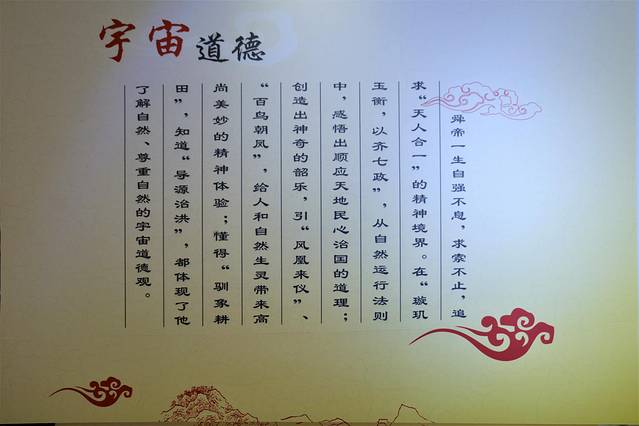 宇宙道德
舜帝一生自强不息，求索不止，追
求“天人合一”的精神境界。在“璇玑
玉衡，以齐七政”，从自然运行法则
中，感悟出顺应天地民心治国的道理；
创造出神奇的韶乐，引“凤凰来仪”、
“百鸟朝凤”，给人和自然生灵带来高
尚美妙的精神体验；懂得“驯象耕
田”，知道“导源治洪”，都体现了他
了解自然、尊重自然的宇宙道德观。